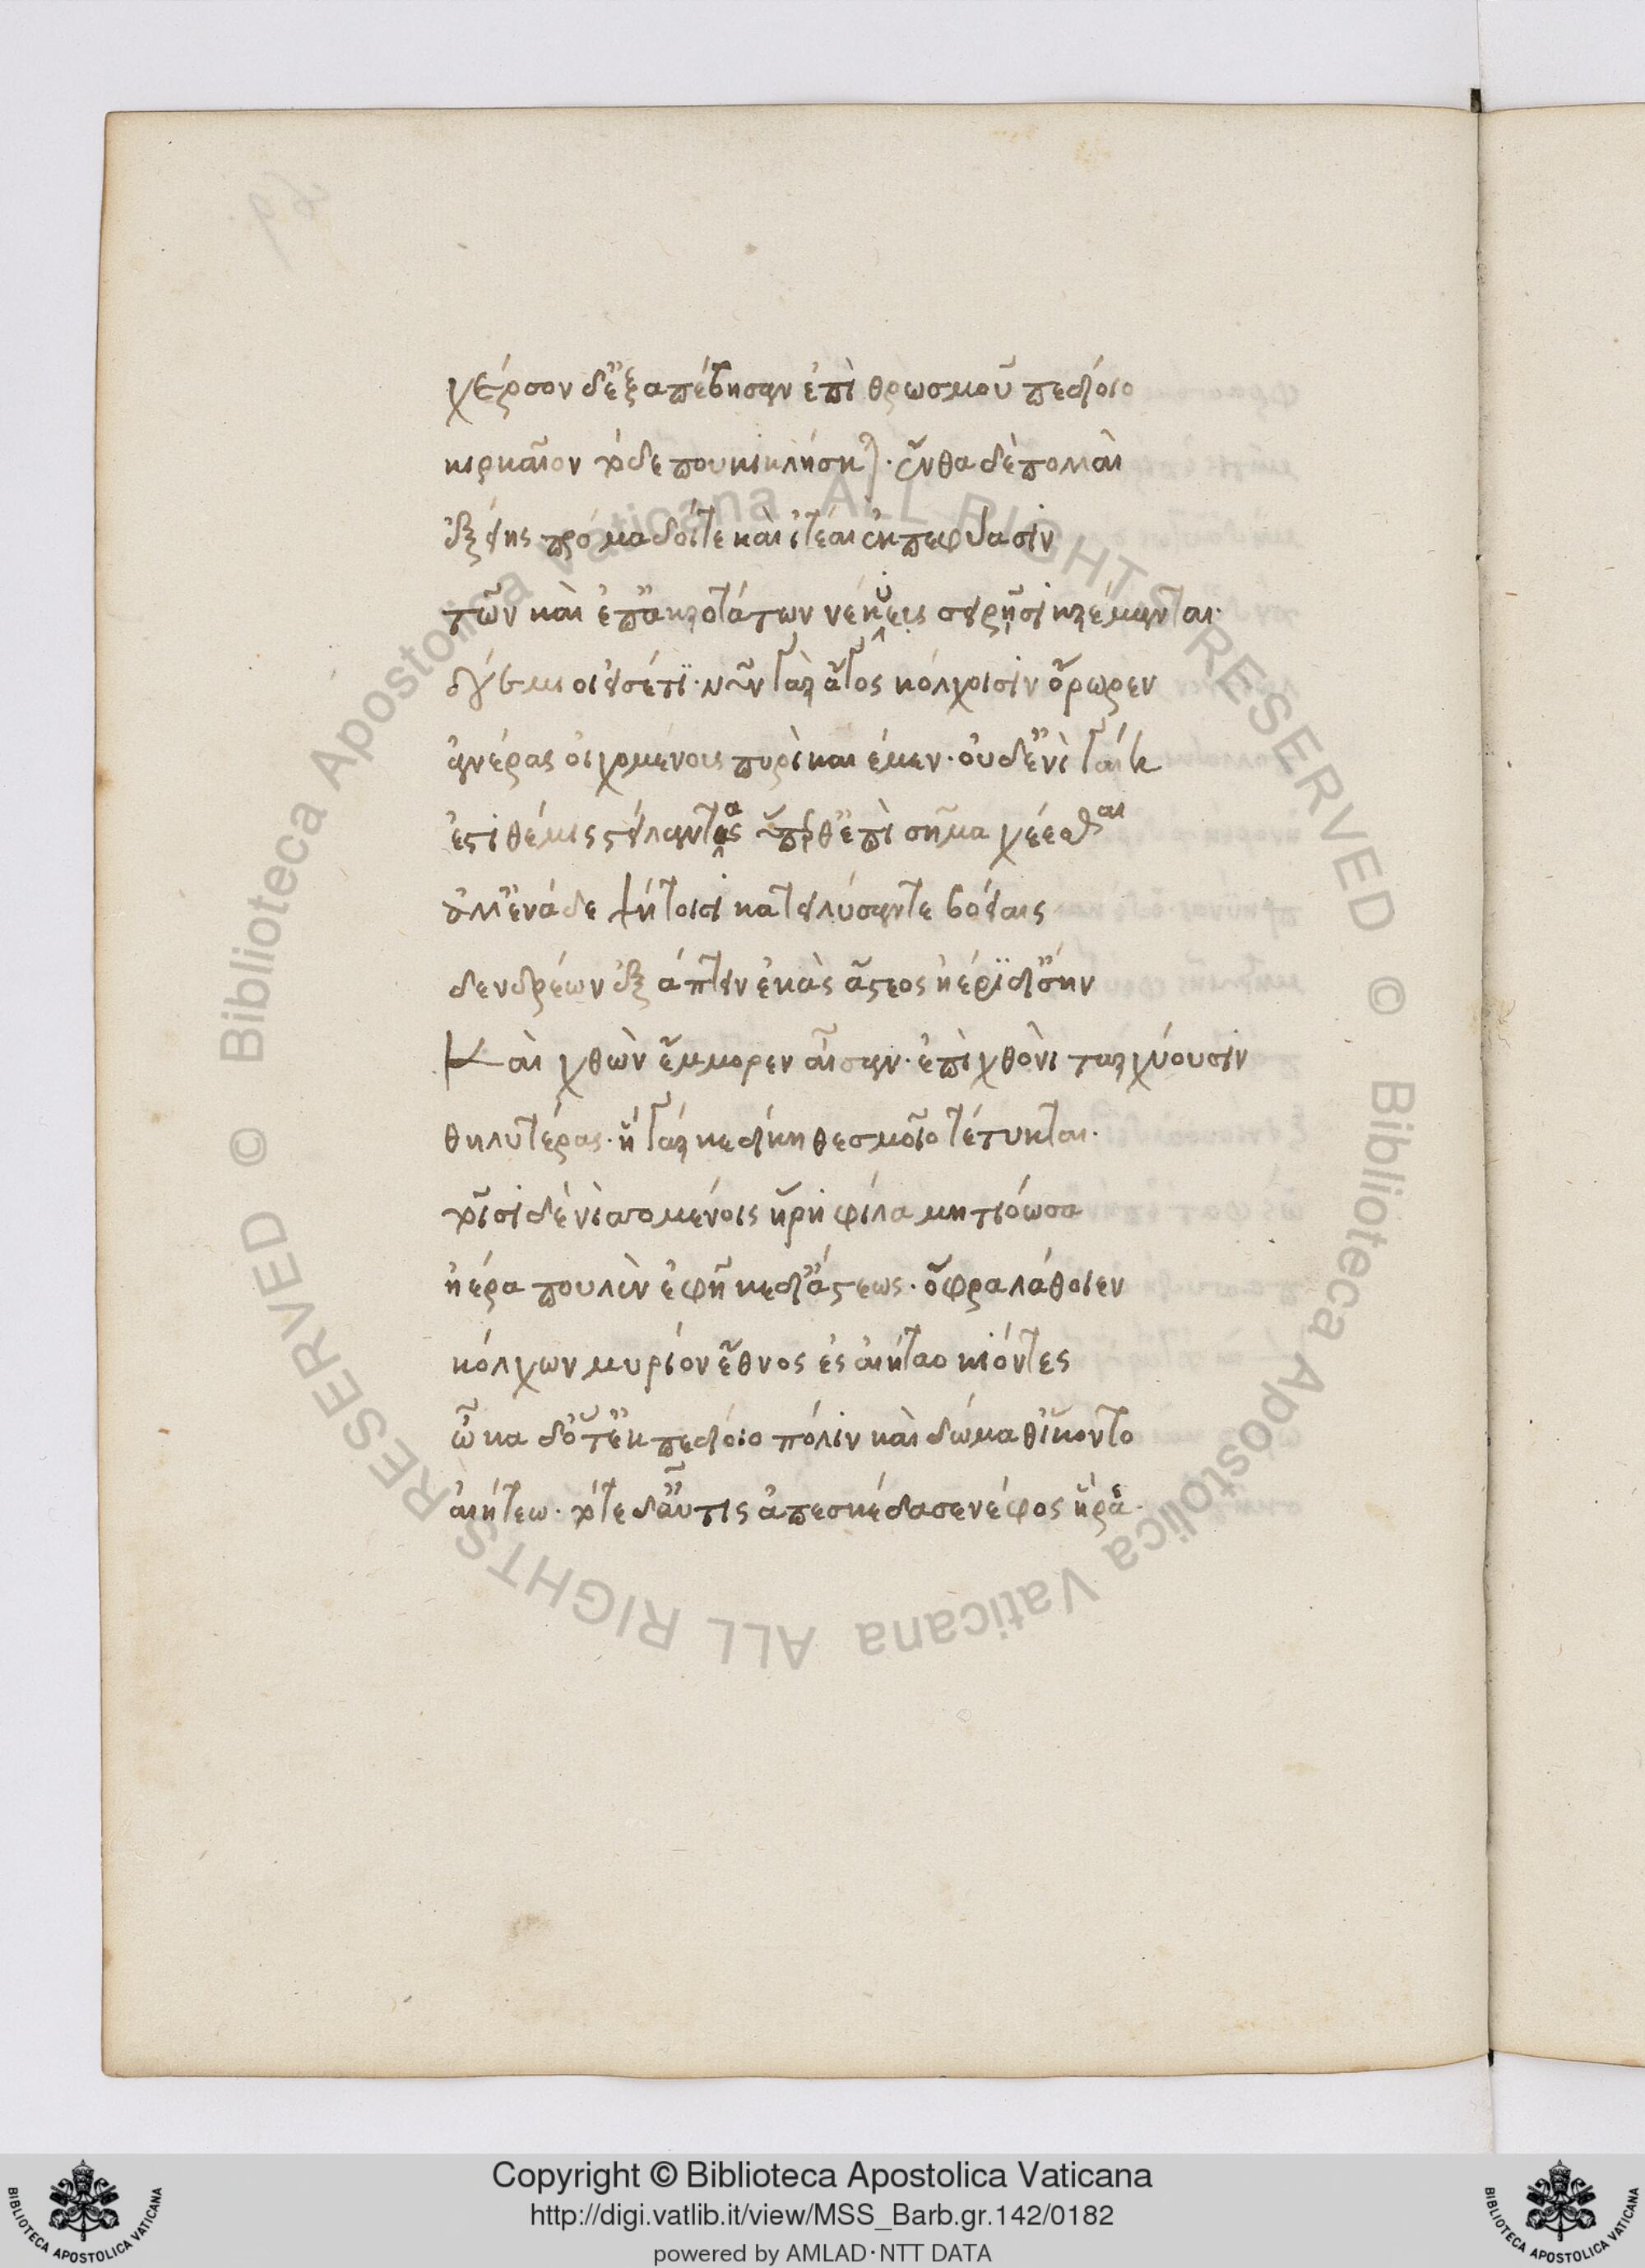 χέρσον δ' ἐξαπέβησαν ἐπὶ θρωσμοῦ πεδίοιο
κιρκαῖον τόδε που κικλήσκεται. ἔνθα δὲ πολλαὶ
ἑξείης πρόμαδοί τε καὶ ἰτέαι ἐκπεφύασιν
τῶν καὶ ἐπ' ἀκροτάτων νέκυες σειρῇσι κρέμανται.
δέσμιοι εἰσέτι. νῦν γὰρ ἄγος κόλχοισιν ὄρωρεν
ἀνέρας οἰχομένοις πυρὶ καιέμεν. οὐδ' ἐνὶ γαίῃ
ἐστὶ θέμις στείλαντας ὕπερθ' ἐπὶ σῆμα χέεσθαι
ἀλλ' ἐν ἀδεψήτοισι κατειλύσαντε βοείαις
δενδρέων ἐξάπτειν ἑκὰς ἄστεος ἠέρι δ' ἴσην
Καὶ χθὼν ἔμμορεν αἶσαν. ἐπὶ χθονὶ ταρχύουσιν
θηλυτέρας. ἣ γάρ κε δίκη θεσμοῖο τέτυκται.
τοῖσι δὲ νισσομένοις ἥρη φίλα μητιόωσα
ἠέρα πουλὺν ἐφῆκε δι' ἄστεως. ὄφρα λάθοιεν
κόλχων μυρίον ἔθνος ἐς αἰήταο κιόντες
ὦκα δ' ὅτ' ἐκ πεδίοιο πόλιν καὶ δώμαθ' ἵκοντο
αἰήτεω. τότε δ' αὖτις ἀπεσκέδασε νέφος ἥρα.
Copyright © Biblioteca Apostolica Vaticana
http://digi.vatlib.it/view/MSS_Barb.gr.142/0182
powered by AMLAD·NTT DATA